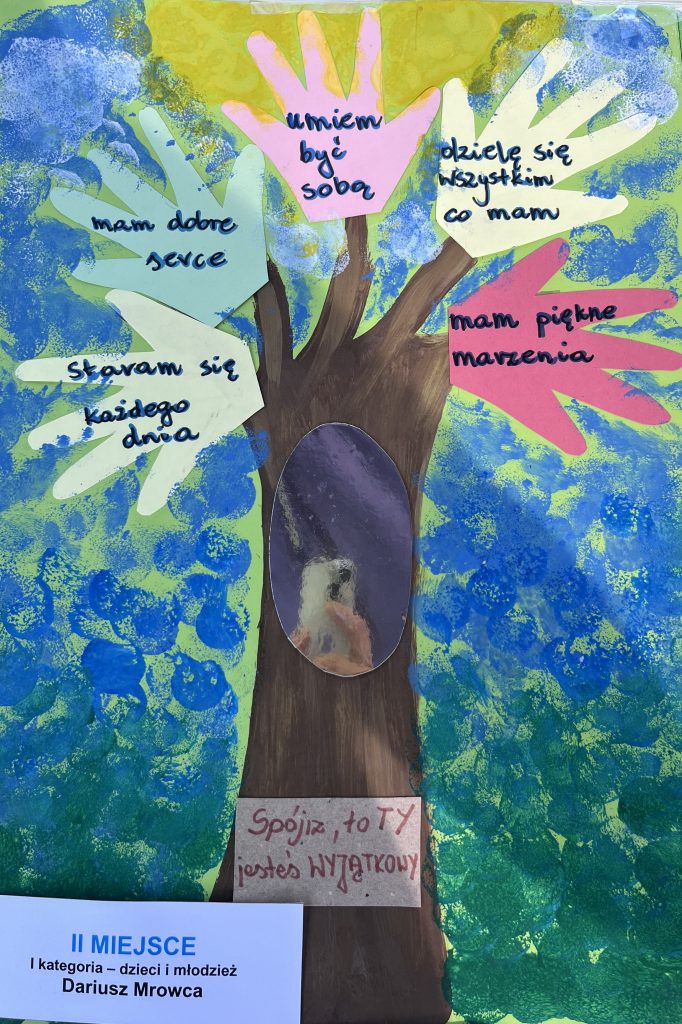 umiem
być
sobą
dzielę się
wszystkim
co mam
mam dobre
serce
mam piękne
marzenia
staram się
każdego
dnia
Spójrz, to TY
jesteś WYJĄTKOWY
II MIEJSCE
I kategoria – dzieci i młodzież
Dariusz Mrowca